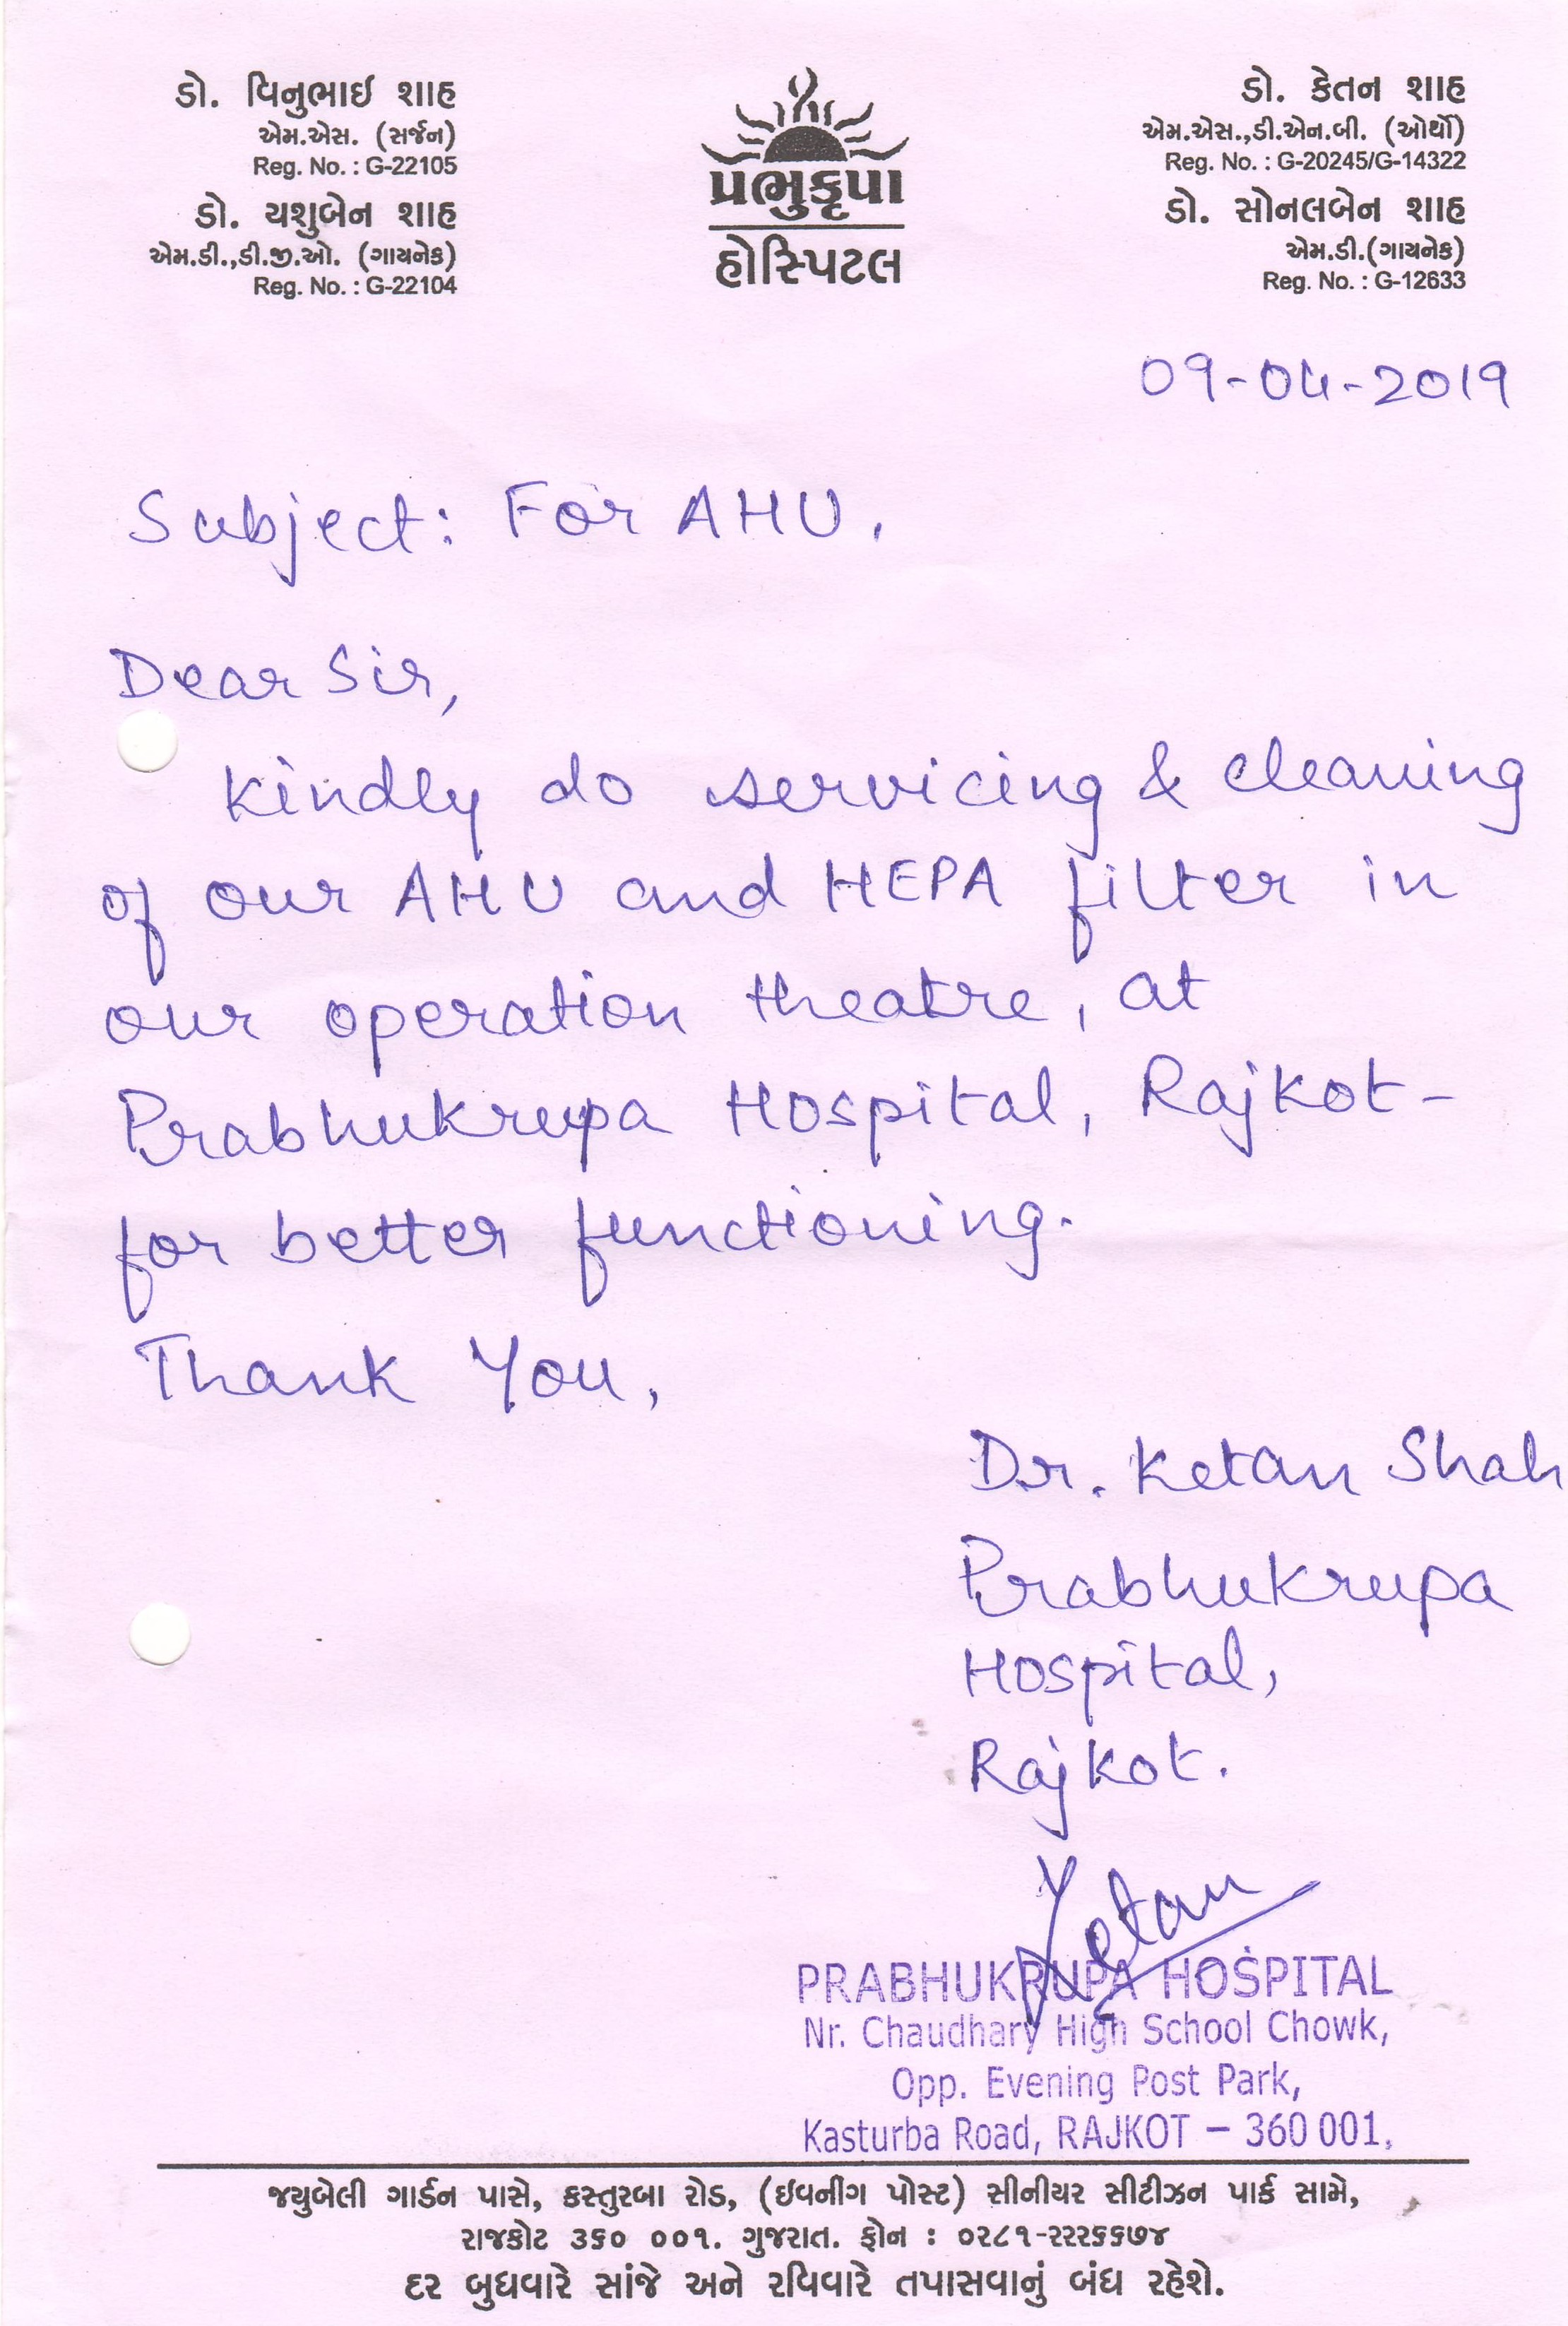 ડો. વિનુભાઈ શાહ
એમ.એસ. (સર્જન)
Reg. No. : G-22105
ડો. યશુબેન શાહ
એમ.ડી.,ડી.જી.ઓ. (ગાયનેક)
Reg. No. : G-22104
પ્રભુકૃપા
હોસ્પિટલ
ડો. કેતન શાહ
એમ.એસ.,ડી.એન.બી. (ઓર્થો)
Reg. No. : G-20245/G-14322
ડો. સોનલબેન શાહ
એમ.ડી.(ગાયનેક)
Reg. No. : G-12633
09-04-2019
Subject: For AHU.
Dear Sir,
Kindly do servicing & cleaning
of our AHU and HEPA filter in
our operation theatre, at
Prabhukrupa Hospital, Rajkot-
for better functioning.
Thank You,
Dr. Ketan Shah
Prabhukrupa
Hospital,
Rajkot.
Ketan
PRABHUKRUPA HOSPITAL
Nr. Chaudhary High School Chowk,
Opp. Evening Post Park,
Kasturba Road, RAJKOT – 360 001.
જ્યુબેલી ગાર્ડન પાસે, કસ્તુરબા રોડ, (ઇવનીંગ પોસ્ટ) સીનીયર સીટીઝન પાર્ક સામે,
રાજકોટ ૩૬૦ ૦૦૧. ગુજરાત. ફોન : ૦૨૮૧-૨૨૨૬૬૭૪
દર બુધવારે સાંજે અને રવિવારે તપાસવાનું બંધ રહેશે.